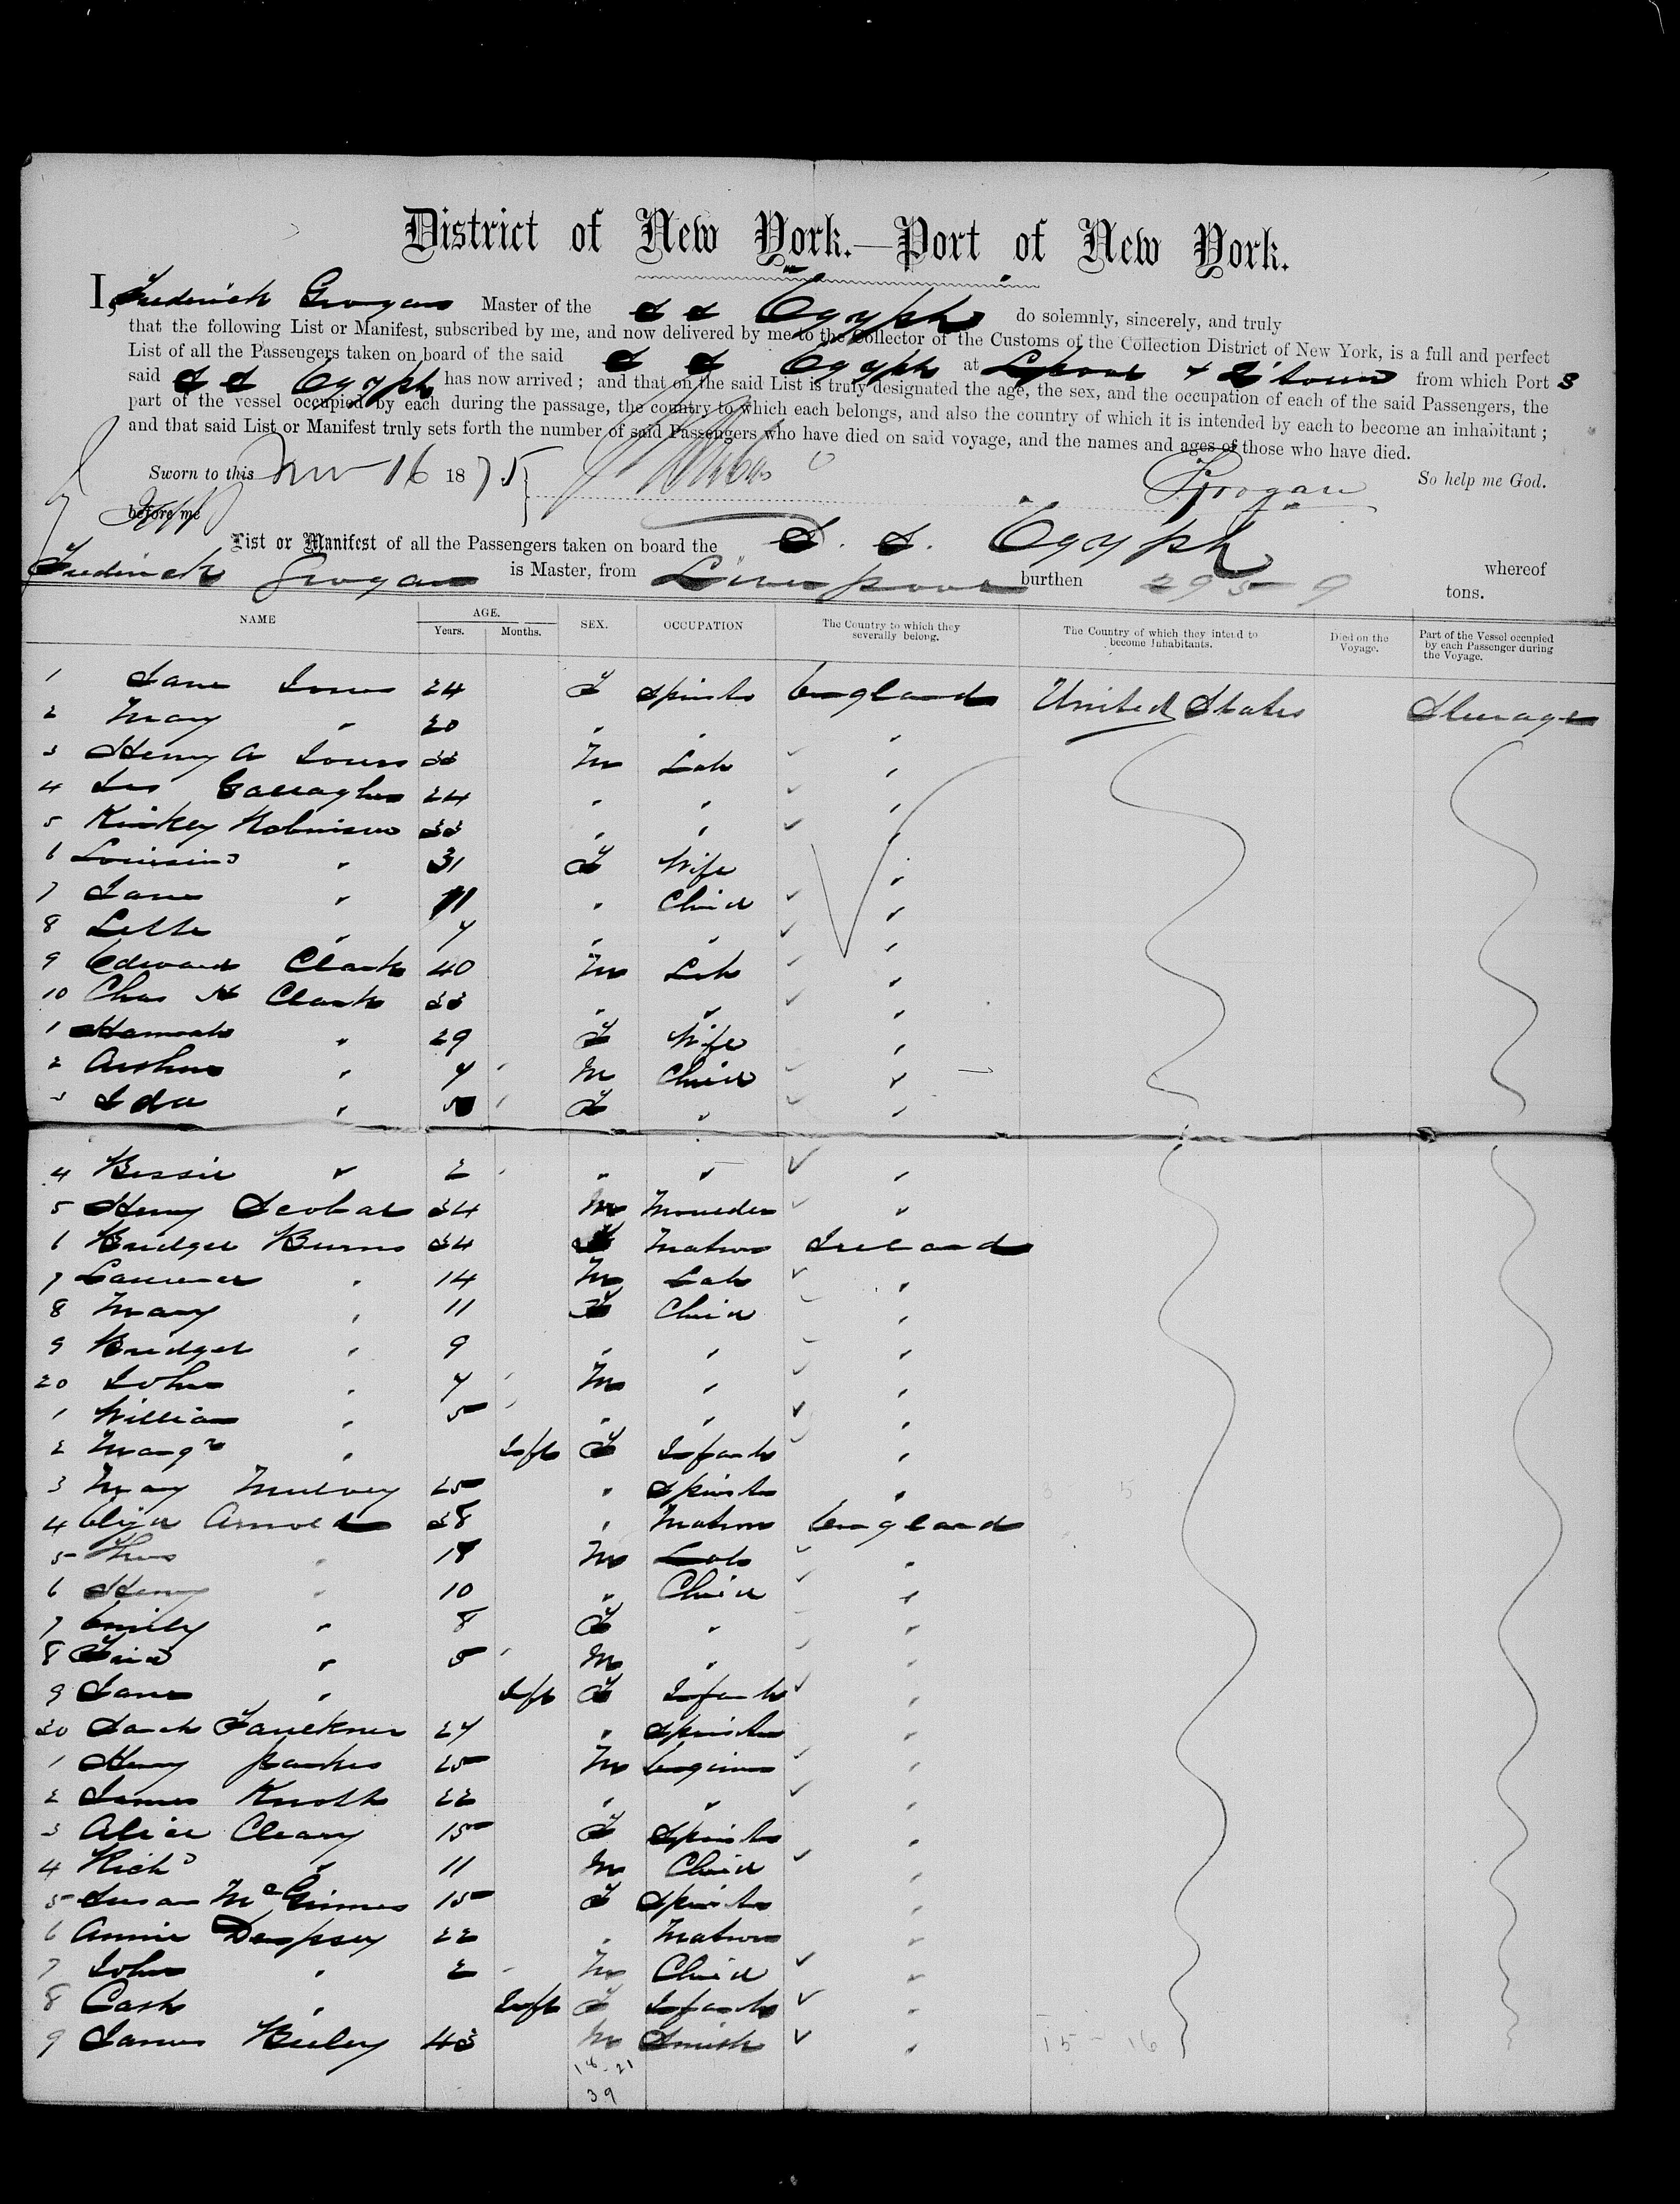 District of New York.—Port of New York.
I, Frederick Grogan Master of the S S Egypt do solemnly, sincerely, and truly
that the following List or Manifest, subscribed by me, and now delivered by me to the Collector of the Customs of the Collection District of New York, is a full and perfect
List of all the Passengers taken on board of the said S S Egypt at Lpool & Q'town from which Port s
said S S Egypt has now arrived; and that on the said List is truly designated the age, the sex, and the occupation of each of the said Passengers, the
part of the vessel occupied by each during the passage, the country to which each belongs, and also the country of which it is intended by each to become an inhabitant;
and that said List or Manifest truly sets forth the number of said Passengers who have died on said voyage, and the names and ages of those who have died.
Sworn to this Nov 16 1875 So help me God.
before me FGrogan
List or Manifest of all the Passengers taken on board the S. S. Egypt whereof
Frederick Grogan is Master, from Liverpool burthen 2959 tons.
NAME AGE. Years. Months. SEX. OCCUPATION The Country to which they severally belong. The Country of which they intend to become Inhabitants. Died on the Voyage. Part of the Vessel occupied by each Passenger during the Voyage.
1 Jane Jones 24 F Spinstr England United States Steerage
2 Mary " 20 " " "
3 Henry A Jones 33 M Lab "
4 Jas Gallagher 24 " " "
5 Robinson 33 " " "
6 " 31 F Wife "
7 Jane " 11 " Child "
8 " 7 " " "
9 Edward Clark 40 M Lab "
10 Chas H Clark 33 " " "
1 Hannah " 29 F Wife "
2 Arthur " 7 M Child "
3 Ida " 5 F " "
4 Bessie " 2 " " "
5 Henry Scobal 34 M Moulder "
6 Bridget Burns 34 F Matron Ireland
7 Laurence " 14 M Lab "
8 Mary " 11 F Child "
9 Bridget " 9 " " "
20 John " 7 M " "
1 William " 5 " " "
2 Margt " Inft F Infant "
3 Mary Mulvey 25 " Spinstr "
4 Eliza Arnold 38 " Matron England
5 Thos " 18 M Lab "
6 Henry " 10 " Child "
7 Emily " 8 F " "
8 Fred " 5 M " "
9 Jane " Inft F Infant "
30 Sarah Faulkner 27 " Spinstr "
1 Henry Parkes 25 M Engineer "
2 James Knott 22 " " "
3 Alice Cleary 15 F Spinstr "
4 Richd " 11 M Child "
5 Susan McGinnes 15 F Spinstr "
6 Annie Dempsey 22 " Matron "
7 John " 2 M Child "
8 Cath " Inft F Infant "
9 James 43 M Smith " 15-16
18-21
39